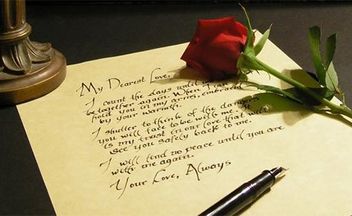 My Dearest Love,
I count the days until
together again. When I can
hold you in my arms
by your warmth.
I shutter to think of the dangers
you will face to be with me. It
is my trust in our love that will
see you safely back to me.
I will find no peace until you are
with me again.
Your Love, Always